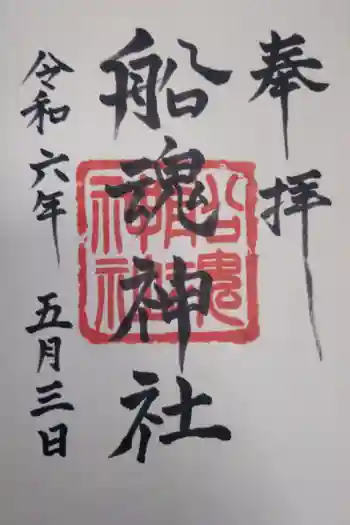 奉拝
船魂神社
令和六年 五月三日
船魂神社